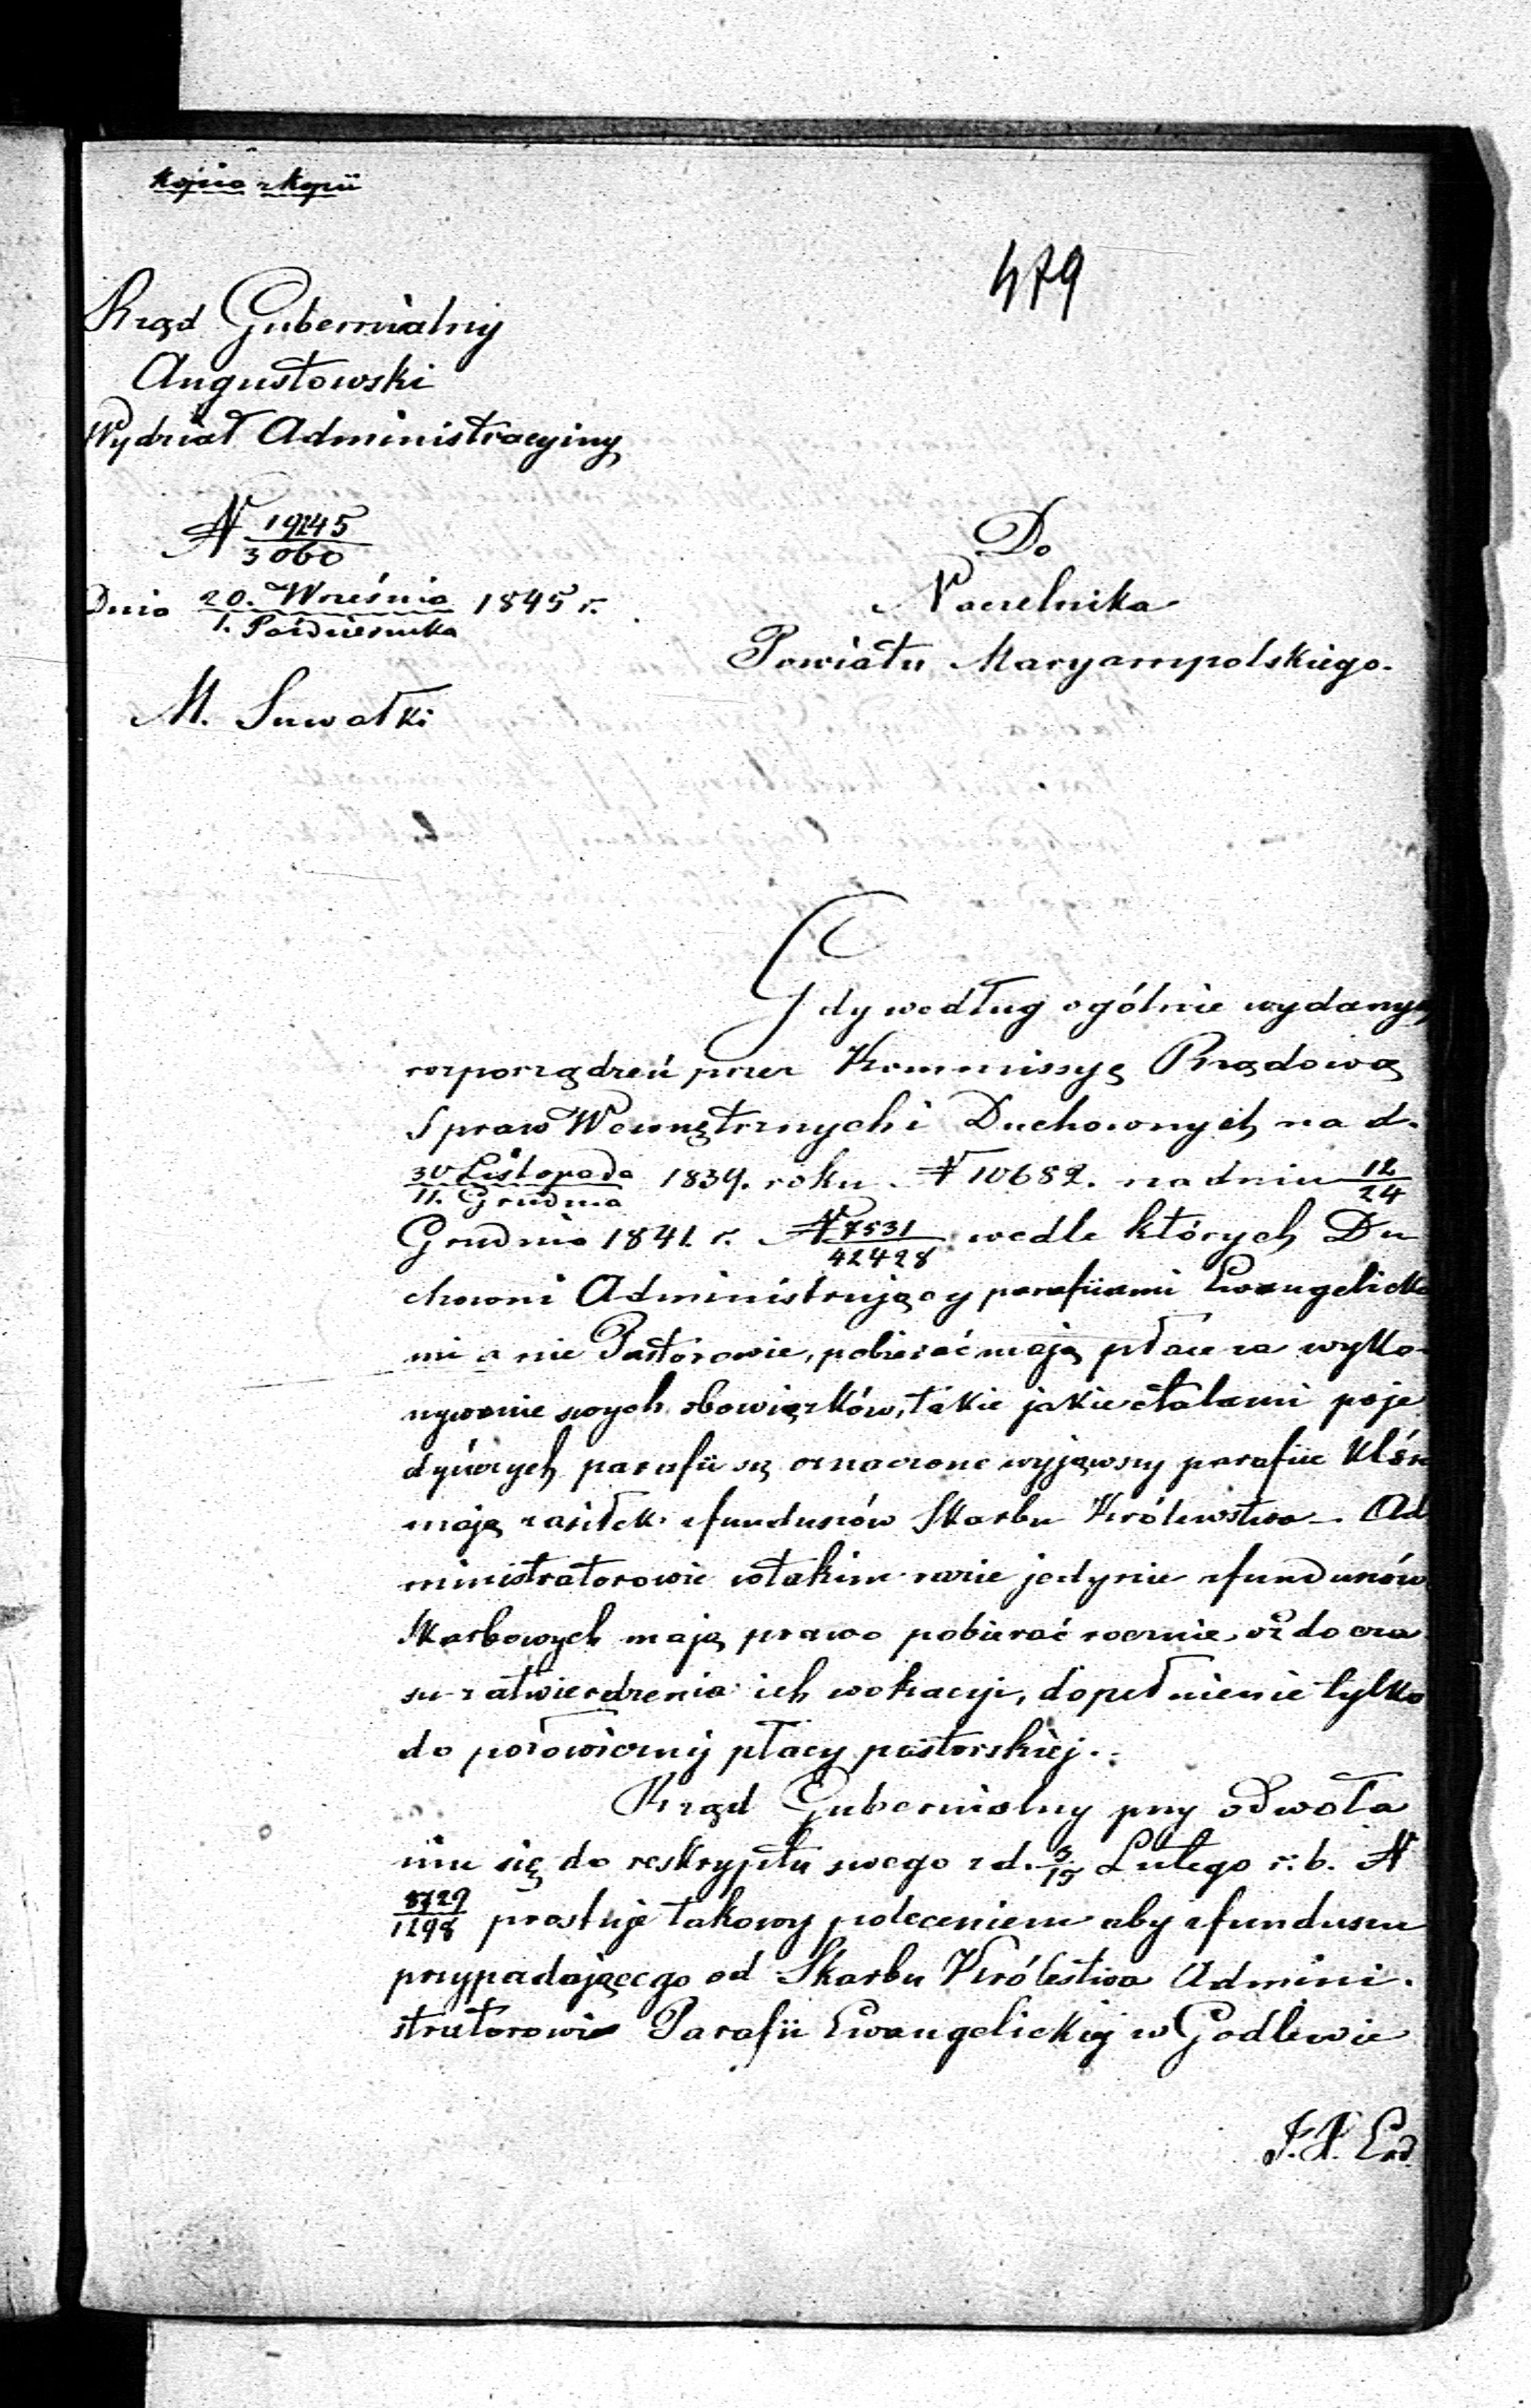 Kopia z kopii
479
Rząd Gubernialny
Augustowski
Wydział Administracyiny
N 19245/3060
Dnia 20. Września/1. Października 1845 r.
M. Suwałki
Do
Naczelnika
Powiatu Maryampolskiego.
Gdy według ogólnie wydanych
rozporządzeń przez Kommissyę Rządową
Spraw Wewnętrznych i Duchownych na d.
30 Listopada/11. Grudnia 1839. roku N 10682. na dniu 12/24
Grudnia 1841. r. N 7531/42428 wedle których Du
chowni Administrujący parafiiami Ewangelicke
mi a nie Pastorowie, pobierać mają płace za wyko-
nywanie swych obowiązków, takie jakie etatami poje
dyńczych parafii są oznaczone wyjąwszy parafiie któr
mają zasiłek z funduszów Skarbu Królewstwa. Ad
ministratorowie w takim razie jedynie z funduszów
Skarbowych mają prawo pobierać rocznie, aż do cza
su zatwierdzenia ich wokacyi, dopełnienie tylko
do połowicznej płacy pastorskiej.
Rząd Gubernialny przy odwoła
niu się do reskryptu swego z d. 3/15 Lutego r. b. N
8729/1298 prostuje takowy poleceniem aby z funduszu
przypadającego od Skarbu Królestwa Admini.
stratorowi Parafii Ewangelickiej w Godlewie